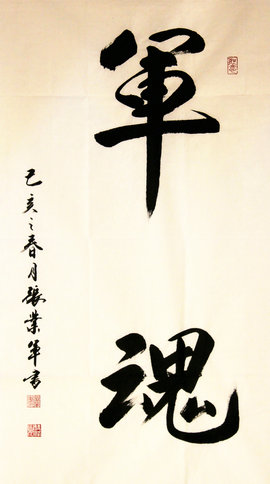 軍魂
己亥之春月張業軍書